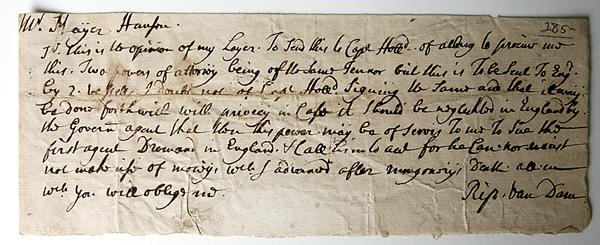 Mr. Mayer Hanson.
285
Js. This is the opinion of my Layer. To Send this to Capt Holld. of alding to procure me
this. Two powers of attorny being of the Same Tennor but this is To be Sent To Engd.
by 2. I doubt not of Capt Holld Signing the Same and that
be done forthwith will in Case it Should be neglected in England by
the Govern agent that then this power may be of Servis To me To Sue the
first agent in England. & Call him to acct for he Can nor must
not make use of monys wch I advanced after mongomrys Death all in
wch you will oblige me.
Rip. Van Dam